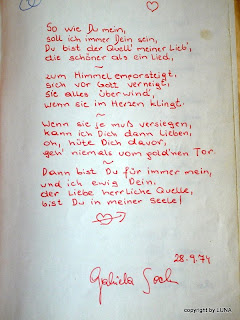 So wie Du mein,
soll ich immer Dein sein,
Du bist der Quell' meiner Lieb',
die schöner als ein Lied,
~
zum Himmel emporsteigt,
sich vor Gott verneigt,
sie alles überwind',
wenn sie im Herzen klingt.
~
Wenn sie je muß versiegen,
kann ich Dich dann Lieben,
oh, hüte Dich davor,
geh' niemals vom gold'nen Tor.
~
Dann bist Du für immer mein,
und ich ewig Dein.
der Liebe herrliche Quelle,
bist Du in meiner Seele!
28.9.74
Gabriela
copyright by LUNA